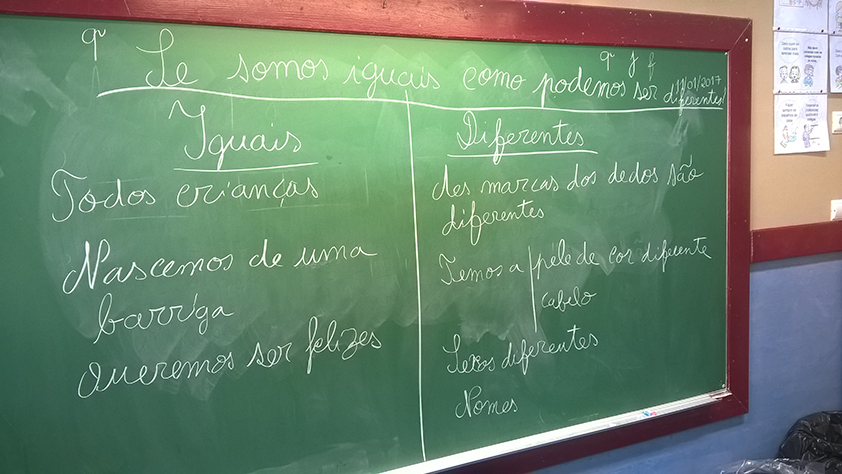 Se somos iguais como podemos ser diferentes!
Iguais
Todos crianças
Nascemos de uma
barriga
Queremos ser felizes
Diferentes
As marcas dos dedos são
diferentes
Temos a pele de cor diferente
cabelo
Sexos diferentes
Nomes